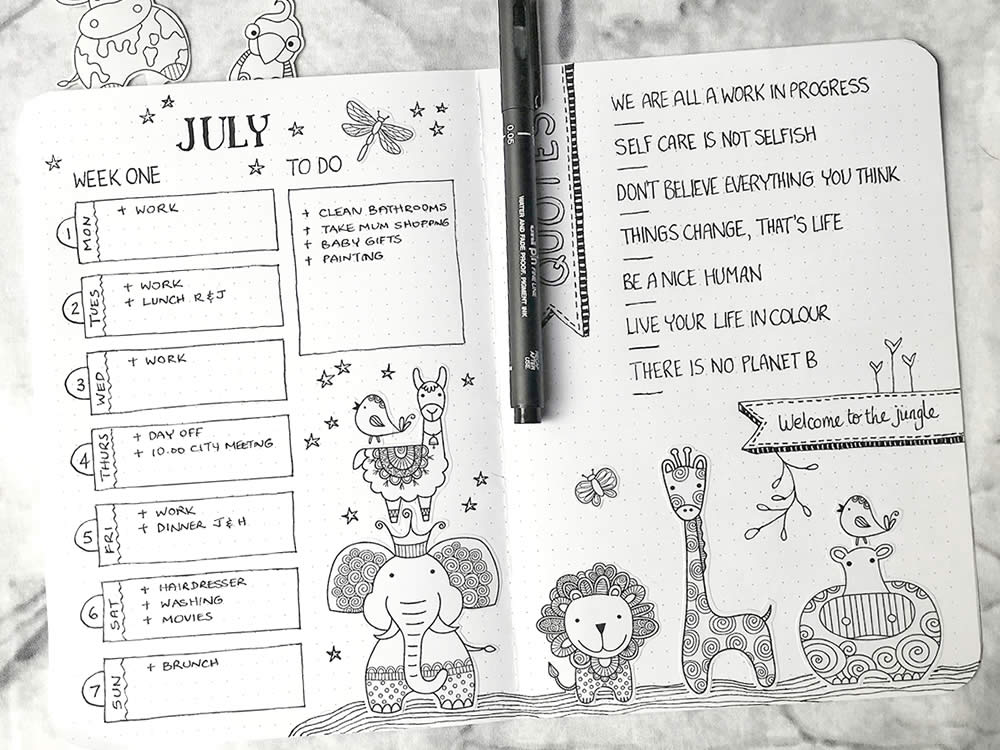 JULY
WEEK ONE
1
MON
+ WORK
2
TUES
+ WORK
+ LUNCH R & J
3
WED
+ WORK
4
THURS
+ DAY OFF
+ 10.00 CITY MEETING
5
FRI
+ WORK
+ DINNER J & H
6
SAT
+ HAIRDRESSER
+ WASHING
+ MOVIES
7
SUN
+ BRUNCH
TO DO
+ CLEAN BATHROOMS
+ TAKE MUM SHOPPING
+ BABY GIFTS
+ PAINTING
0.05
uni pin FINE LINE
WATER AND FADE PROOF, PIGMENT INK
QUOTES
WE ARE ALL A WORK IN PROGRESS
SELF CARE IS NOT SELFISH
DON'T BELIEVE EVERYTHING YOU THINK
THINGS CHANGE, THAT'S LIFE
BE A NICE HUMAN
LIVE YOUR LIFE IN COLOUR
THERE IS NO PLANET B
Welcome to the jungle